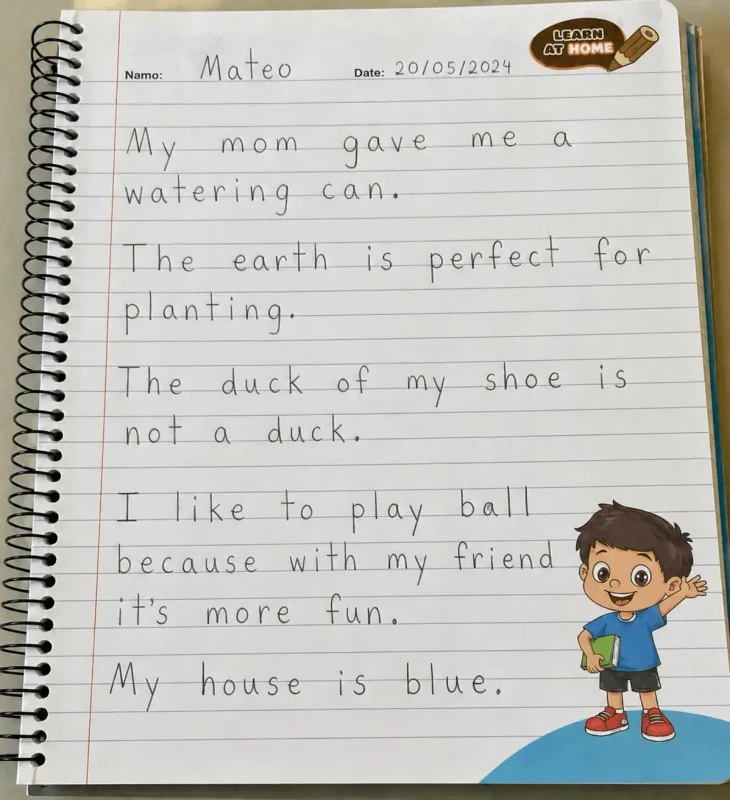 LEARN
AT HOME
Namo: Mateo Date: 20/05/2024
My mom gave me a
watering can.
The earth is perfect for
planting.
The duck of my shoe is
not a duck.
I like to play ball
because with my friend
it's more fun.
My house is blue.